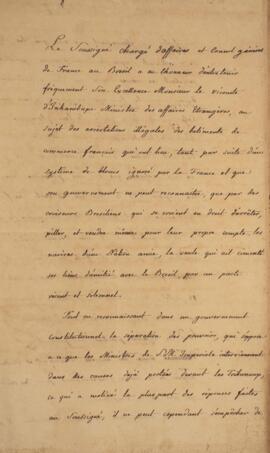 Le Soussigné chargé d'affaires et Consul général
de France au Brésil a eu l'honneur d'entretenir
fréquement Son Excellence Monsieur le vicomte
d'Inhambupe Ministre des affaires Etrangères, au
sujet des arrestations illégales des batiments de
commerce français qui ont lieu, tant par suite d'un
système de blocus ignoré par la France et que
son gouvernement ne peut reconnaitre, que par des
croiseurs Bresiliens qui se croient en droit d'arrêter,
piller, et vendre même pour leur propre compte, les
navires d'une Nation amie, la seule qui ait cimenté
ses liens d'amitié avec le Brésil, par un pacte
récent et solennel.
Tout en reconnaissant dans un gouvernement
constitutionnel la séparation des pouvoirs, qui s'oppose
a ce que les Ministres de S. M. Impériale interviennent
dans des causes déjà portées devant les Tribunaux,
ce qui a motivé la plus part des réponses faites
au Soussigné, il ne peut cependant s'empêcher de